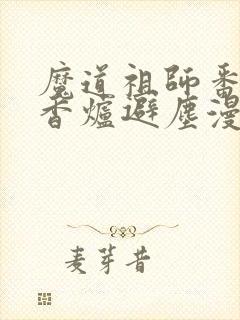 魔道祖師番
香爐避塵漫
麦芽昔